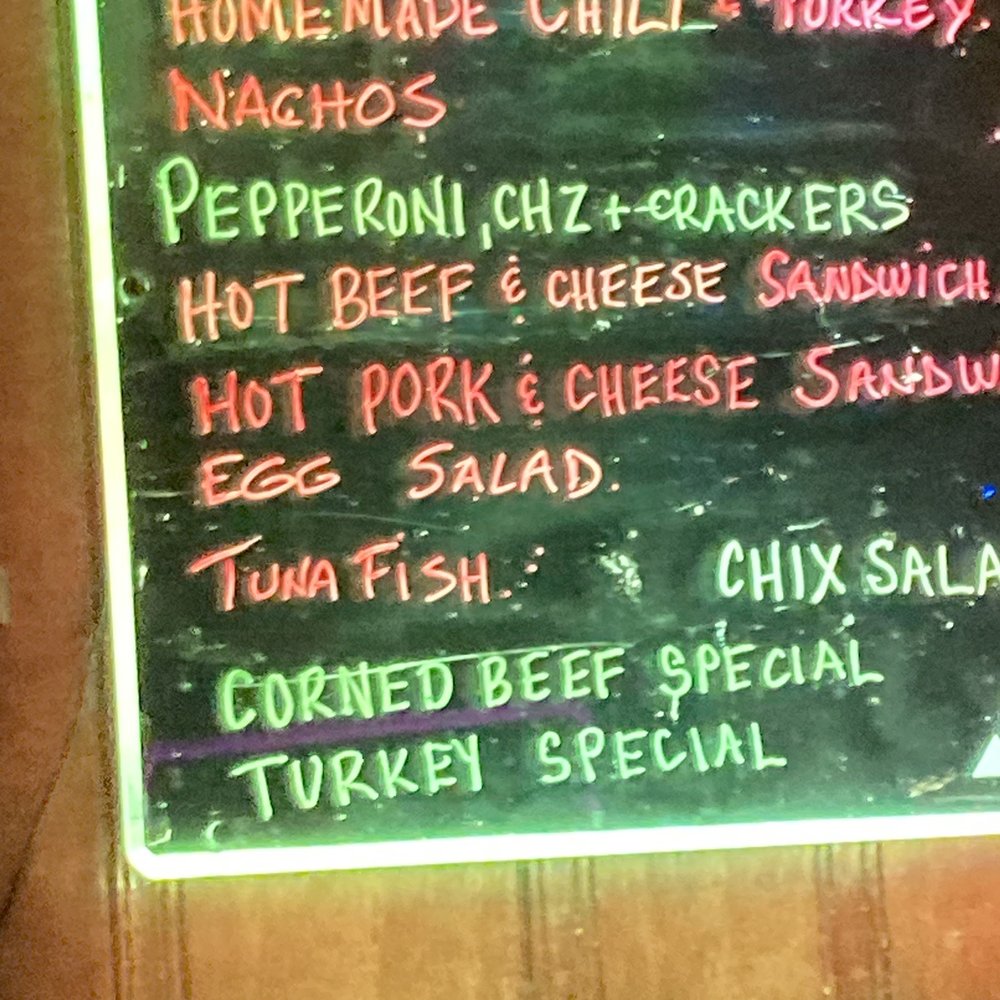 HOMEMADE CHILI & TURKEY.
NACHOS
PEPPERONI, CHZ + CRACKERS
HOT BEEF & CHEESE SANDWICH
HOT PORK & CHEESE SANDW
EGG SALAD.
TUNA FISH. CHIX SALA
CORNED BEEF SPECIAL
TURKEY SPECIAL